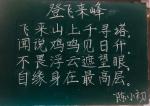 登飞来峰
飞来山上千寻塔，
闻说鸡鸣见日升。
不畏浮云遮望眼，
自缘身在最高层。